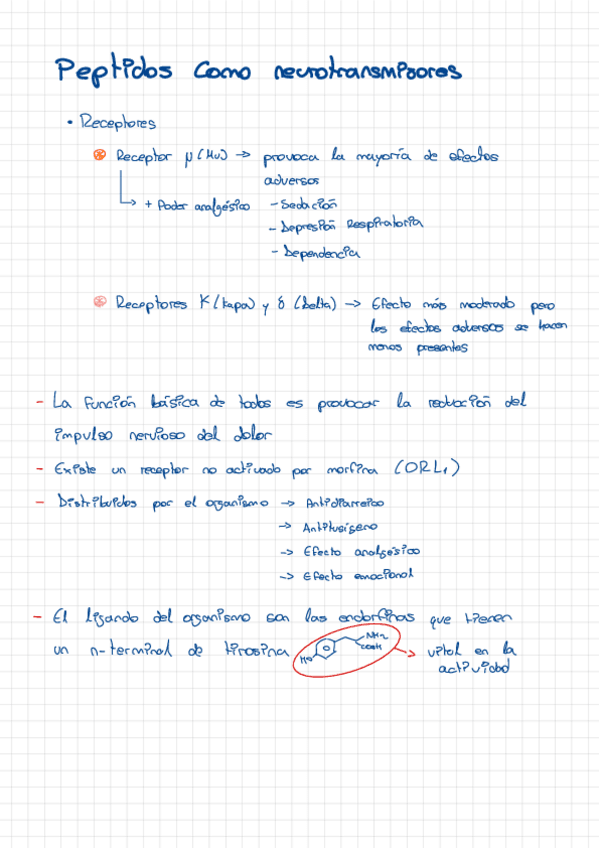 Peptidos como neurotransmisores
• Receptores
Receptor μ (Mu) → provoca la mayoría de efectos
adversos
↳ + Poder analgésico - Sedación
- Depresión Respiratoria
- Dependencia
Receptores K (kapa) y δ (Delta) → Efecto más moderado pero
los efectos adversos se hacen
menos presentes
- La función básica de todos es provocar la reducción del
impulso nervioso del dolor
- Existe un receptor no activado por morfina (ORL₁)
- Distribuidos por el organismo → Antidiarreico
→ Antitusígeno
→ Efecto analgésico
→ Efecto emocional
- El ligando del organismo son las endorfinas que tienen
un n-terminal de tirosina HO NH₂ COOH → vital en la
actividad